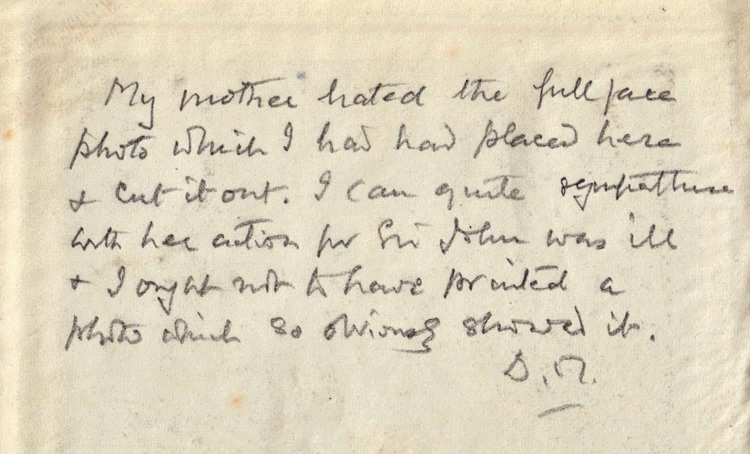 My mother hated the full face
photo which I had had placed here
& cut it out. I can quite sympathise
with her action for Sir John was ill
& I ought not to have printed a
photo which so obviously showed it.
D.M.